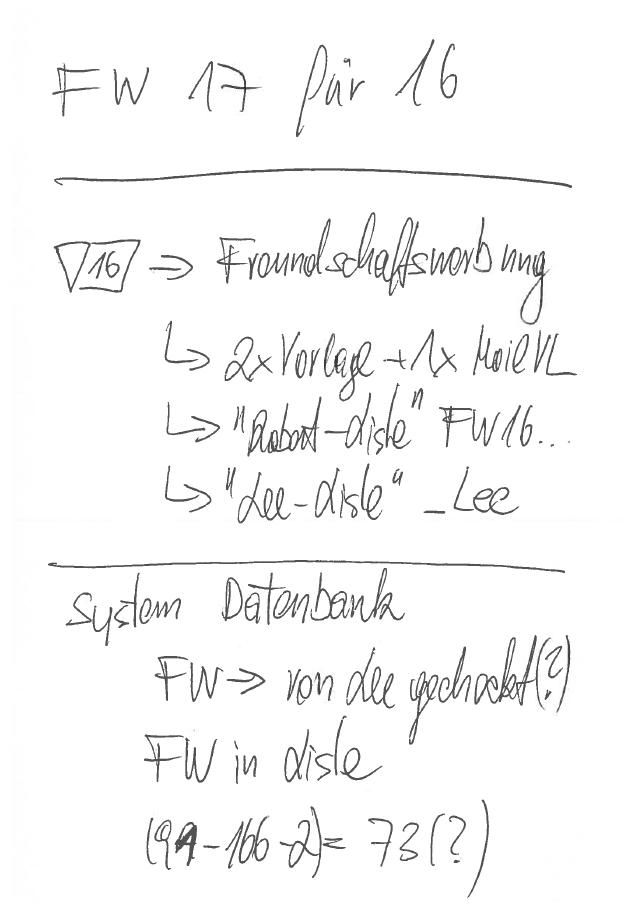 FW 17 für 16
16 ⇒ Freundschaftswerbung
↳ 2x Vorlage + 1x Mail VL
↳ "Robert-Liste" FW16...
↳ "Lee-Liste" _Lee
System Datenbank
FW → von Lee gecheckt (?)
FW in Liste
-166-2) = 73 (?)